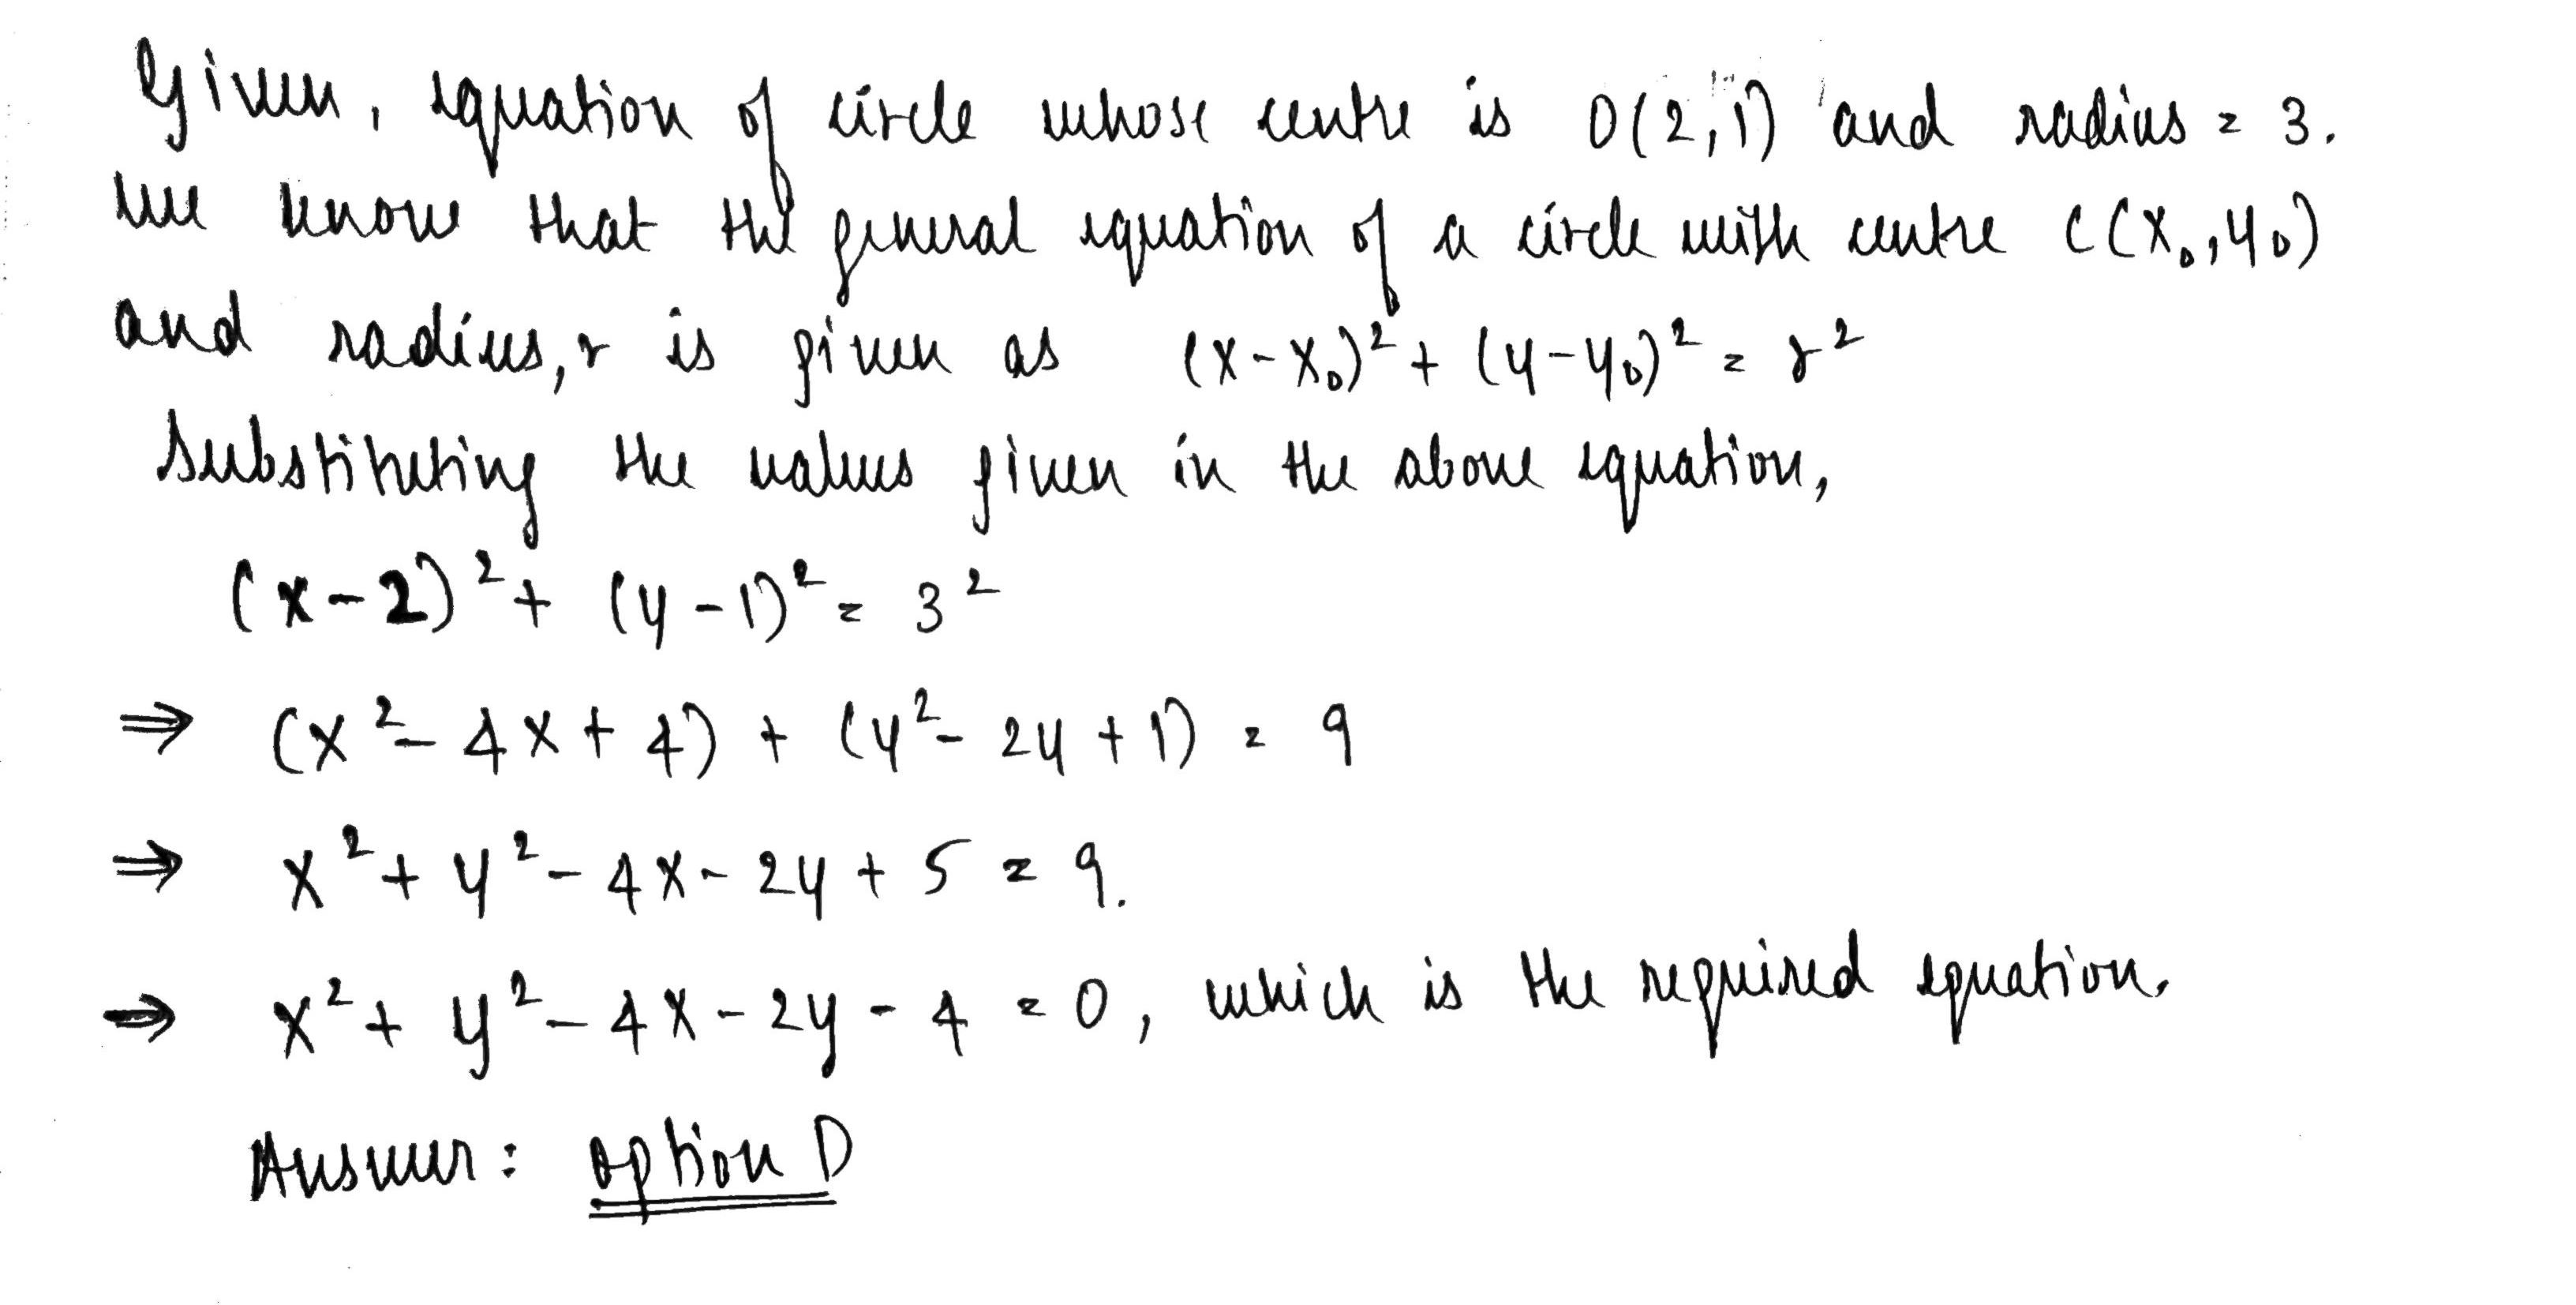 Given, equation of circle whose centre is O(2,1) and radius = 3.
We know that the general equation of a circle with centre C(x₀,y₀)
and radius, r is given as (x-x₀)² + (y-y₀)² = r²
Substituting the values given in the above equation,
(x-2)² + (y-1)² = 3²
⇒ (x² - 4x + 4) + (y² - 2y + 1) = 9
⇒ x² + y² - 4x - 2y + 5 = 9.
⇒ x² + y² - 4x - 2y - 4 = 0, which is the required equation.
Answer: option D